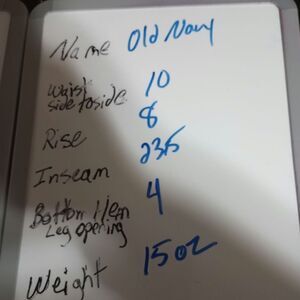 Name Old Navy
Waist 10
side to side
Rise 8
Inseam 23.5
Bottom Hem 4
Leg opening
Weight 15 oz